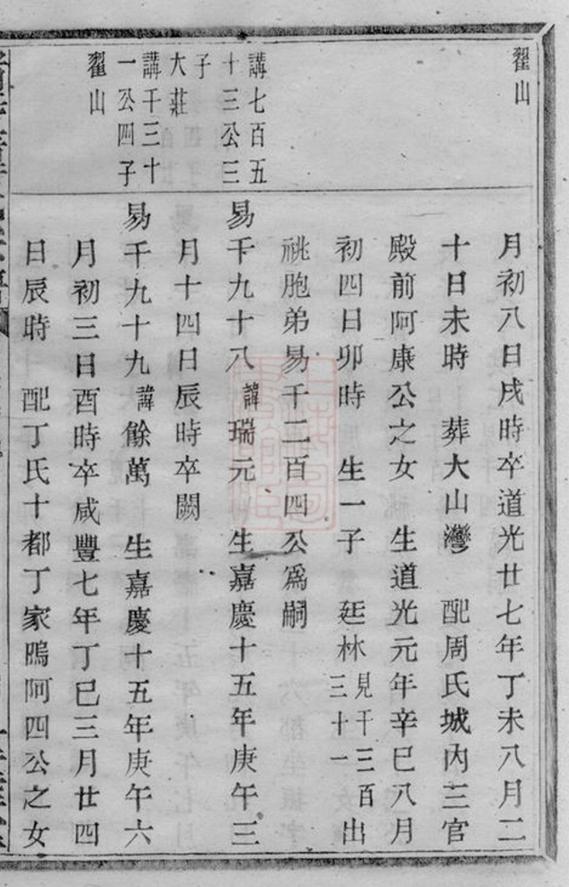 翟山
月初八日戌時卒道光廿七年丁未八月二
十日未時　葬大山灣　配周氏城內三官
殿前阿康公之女　生道光元年辛巳八月
初四日卯時　生一子　廷林見千三百三十一出
祧胞弟易千二百四公爲嗣
講七百五
十三公三
子
大莊
易千九十八諱瑞元　生嘉慶十五年庚午三
月十四日辰時卒闕
講千三十
一公四子
翟山
易千九十九諱餘萬　生嘉慶十五年庚午六
月初三日酉時卒咸豐七年丁巳三月廿四
日辰時　配丁氏十都丁家塢阿四公之女